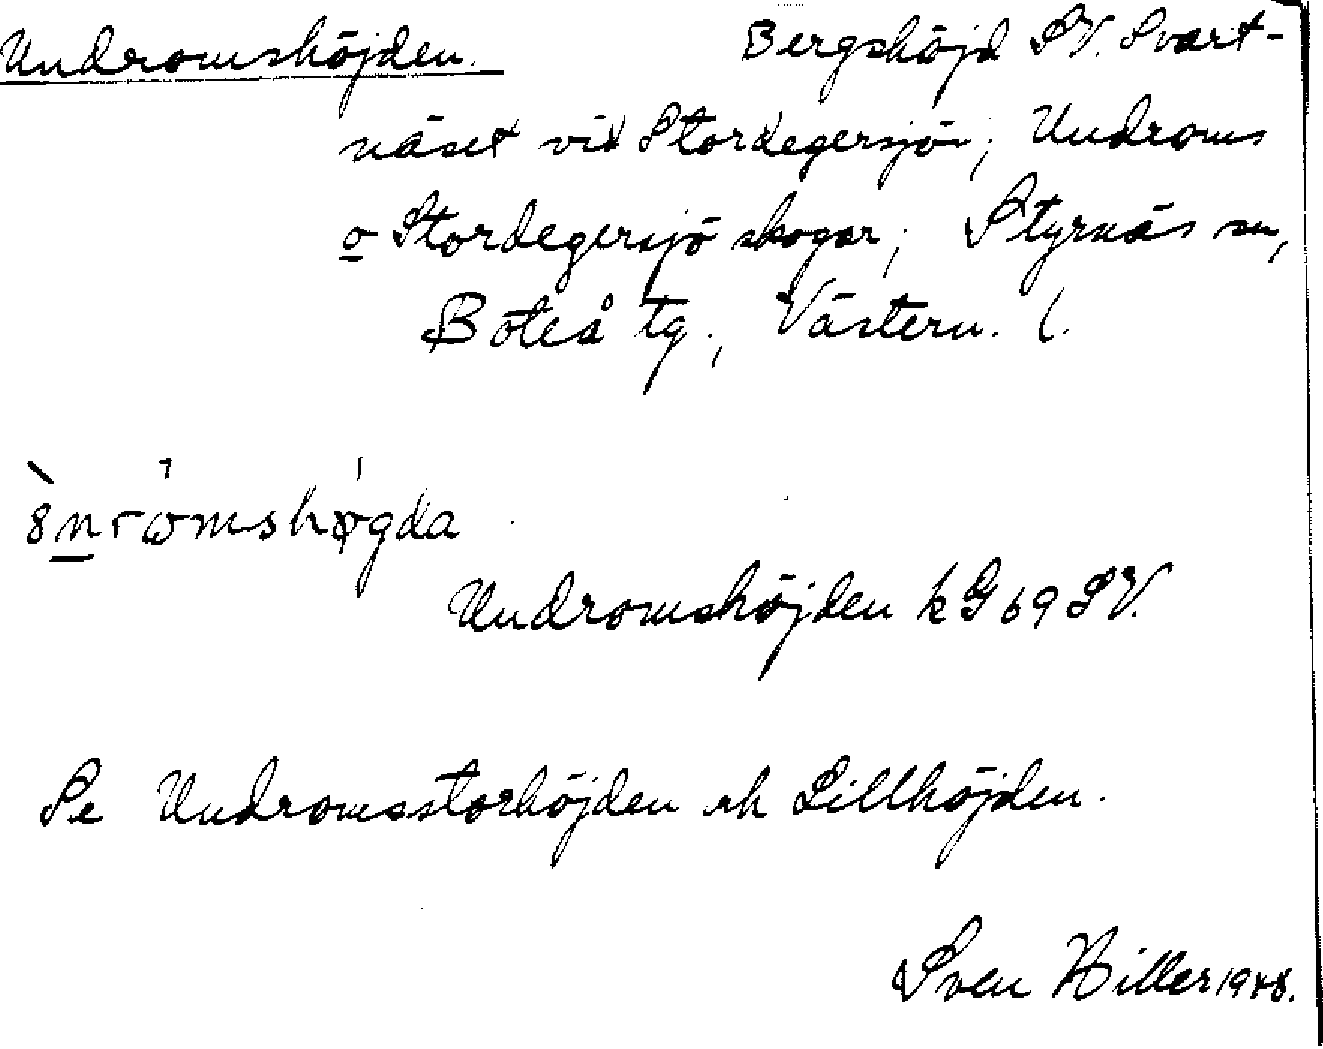 Undromshöjden. Bergshöjd SV. Svart-
näset vid Stordegersjön; Undroms
o Stordegersjö skogar; Styrnäs sn,
Boteå tg., Västern. l.
ȣ̀nrωmshøgda
Undromshöjden kG 69 SV.
Se Undromsstorhöjden och Lillhöjden.
Sven Hiller 1948.